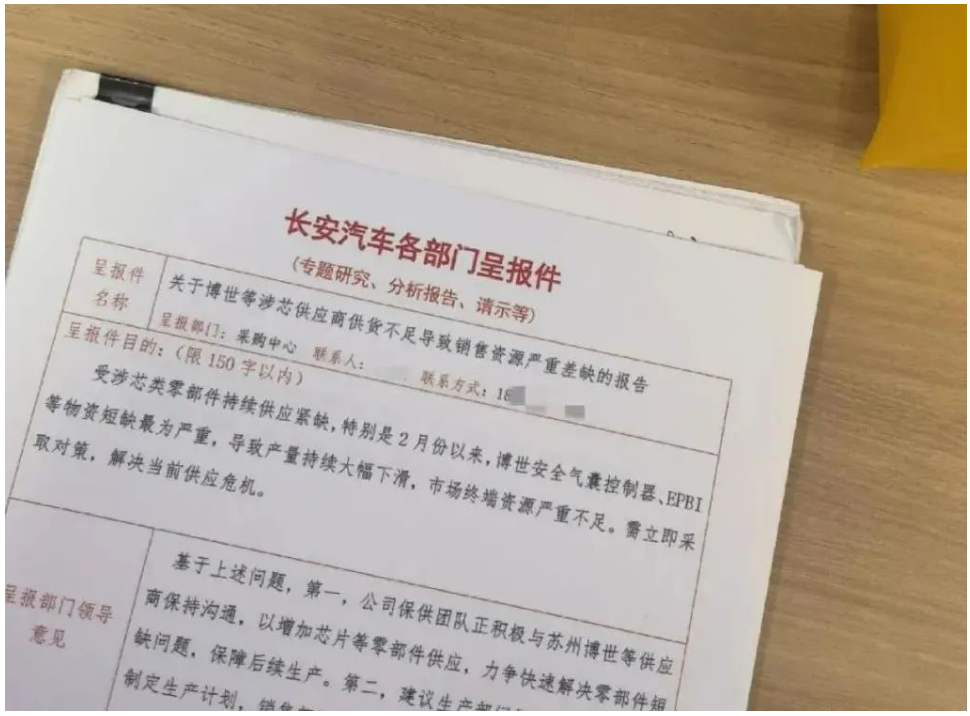 长安汽车各部门呈报件
(专题研究、分析报告、请示等)
呈报件
名称
关于博世等涉芯供应商供货不足导致销售资源严重差缺的报告
呈报部门：采购中心 联系人： 联系方式：18
呈报件目的：(限150字以内)
受涉芯类零部件持续供应紧缺，特别是2月份以来，博世安全气囊控制器、EPBI
等物资短缺最为严重，导致产量持续大幅下滑，市场终端资源严重不足。需立即采
取对策，解决当前供应危机。
呈报部门领导
意见
基于上述问题，第一，公司保供团队正积极与苏州博世等供应
商保持沟通，以增加芯片等零部件供应，力争快速解决零部件短
缺问题，保障后续生产。第二，建议生产部门
制定生产计划，销售